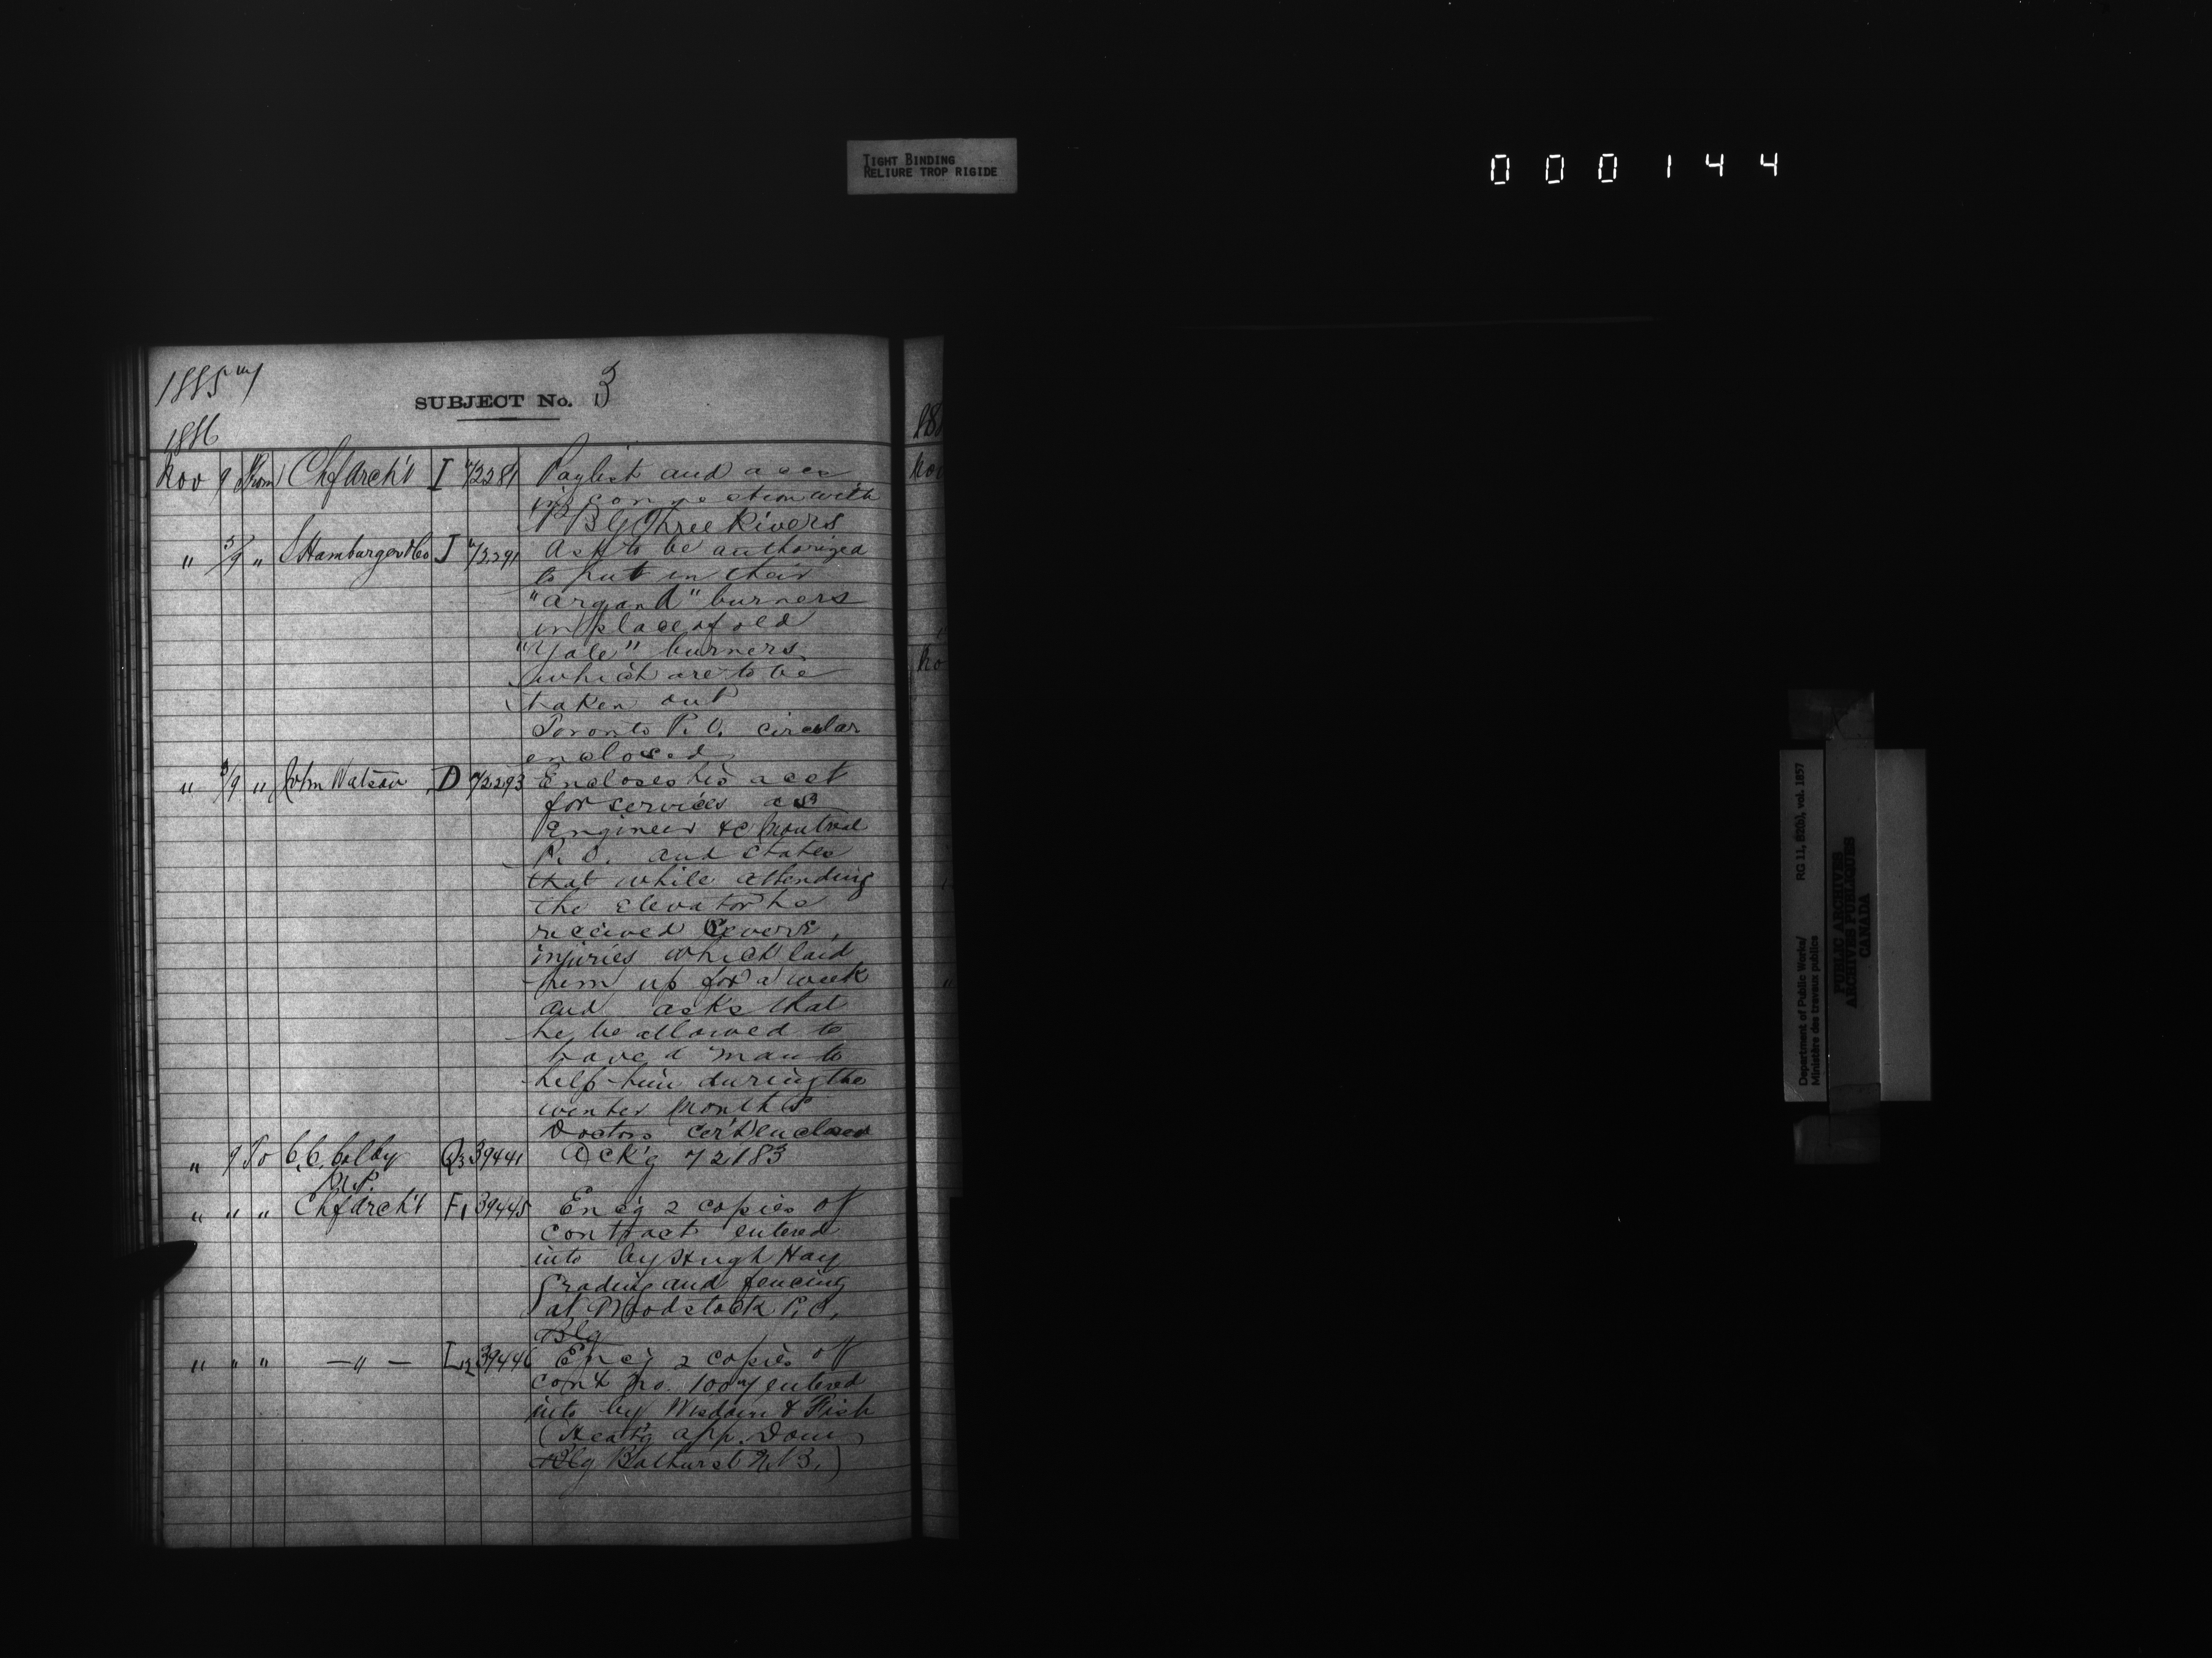 TIGHT BINDING
RELIURE TROP RIGIDE
0 0 0 1 4 4
1885
1886
SUBJECT No. 3
Nov 9 From Chf Arch't I 72281 Paylist and accs
in connection with
P B G Three Rivers
" 5/9 " S Hamburger & Co J 72291 Ask to be authorized
to put in their
"argand" burners
in place of old
"Yale" burners
which are to be
taken out
Toronto P. O. circular
enclosed
" 8/9 " John Watson D 72293 Encloses his acct
for services as
Engineer &c Montreal
P. O. and states
that while attending
the elevator he
received severe
injuries which laid
him up for a week
and asks that
he be allowed to
have a man to
help him during the
winter months
Doctors cert enclosed
" 9 To C. C. Colby Q3 39441 Ack'g 72183
M.P.
" " " Chf Arch't F1 39445 Enc'g 2 copies of
contract entered
into by Hugh Hay
Grading and fencing
at Woodstock P. O.
Blg
" " " — " — L12 39446 Enc'g 2 copies of
cont no. 1007 entered
into by Wisdom & Fish
(Heat'g app. Dom
Blg Bathurst N. B.)
188
Nov
No
Department of Public Works/
Ministère des travaux publics
RG 11, B2(b), vol. 1857
PUBLIC ARCHIVES
ARCHIVES PUBLIQUES
CANADA